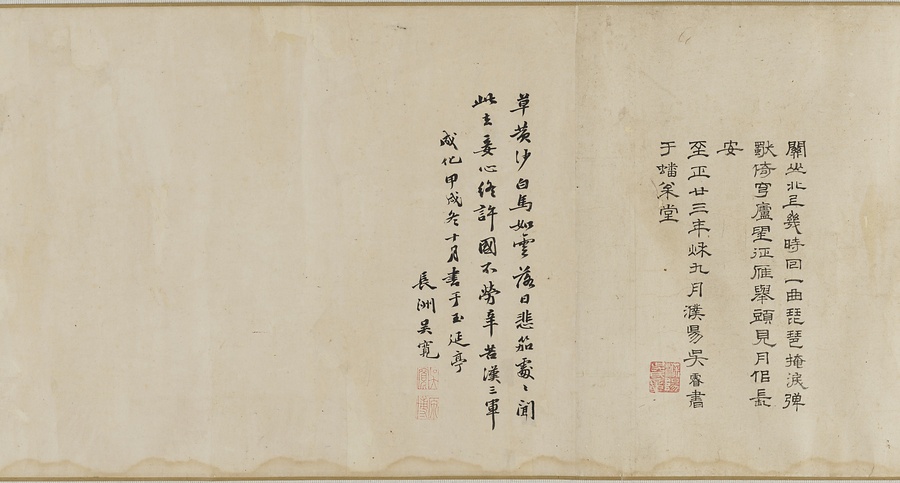 關北幾時回一曲琵琶掩淚彈
倚穹廬望征雁舉頭見月侣長
安
至正廿三年秋九月濮昜吳睿書
于蟠堂
草黄沙白馬如雲落日悲笳處〻聞
此去妾心終許國不勞辛苦漢三軍
成化甲辰冬十月書于玉延亭
長洲吳寬